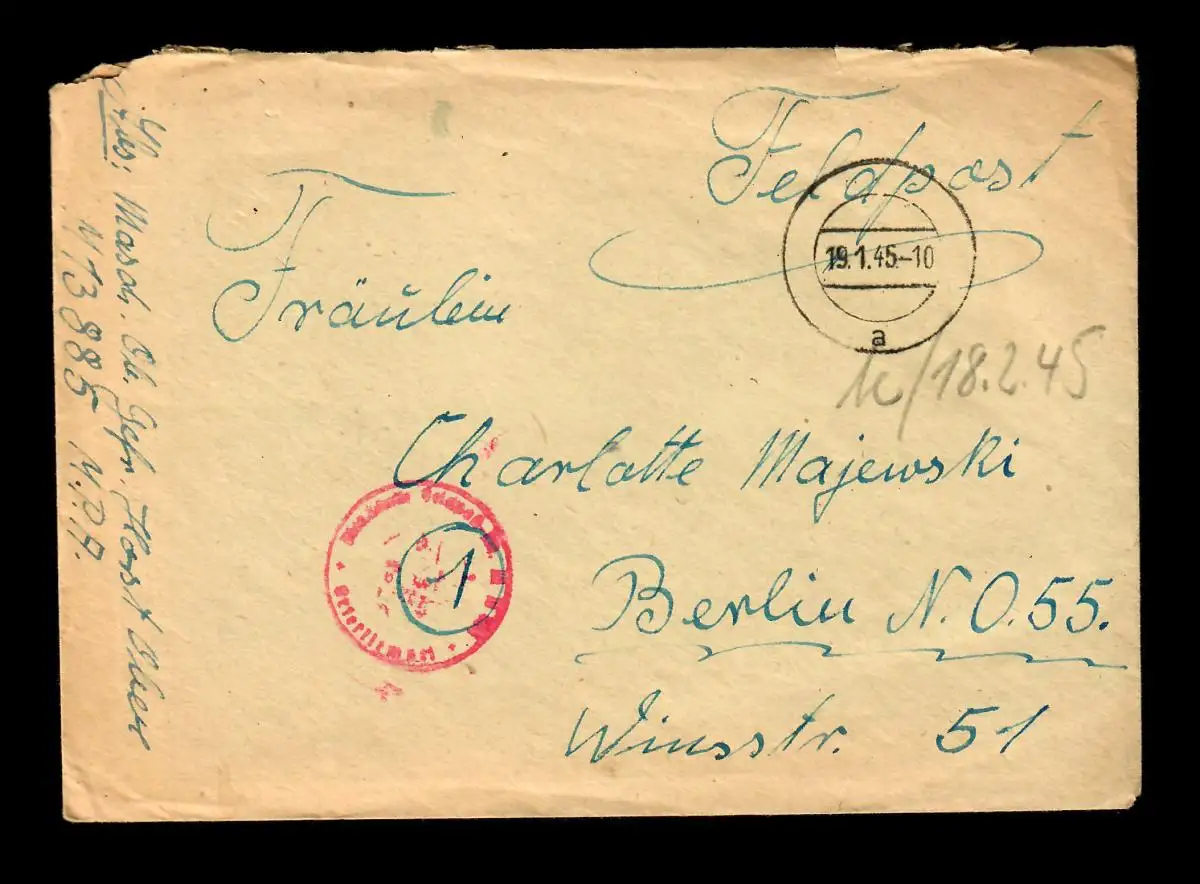 Feldpost
19.1.45-10
a
Fräulein
k/18.2.45
Charlotte Majewski
1
Berlin N.O.55.
Winsstr. 51
Abs: Masch. Ob. Gefr. Horst
M13885 M.P.A.